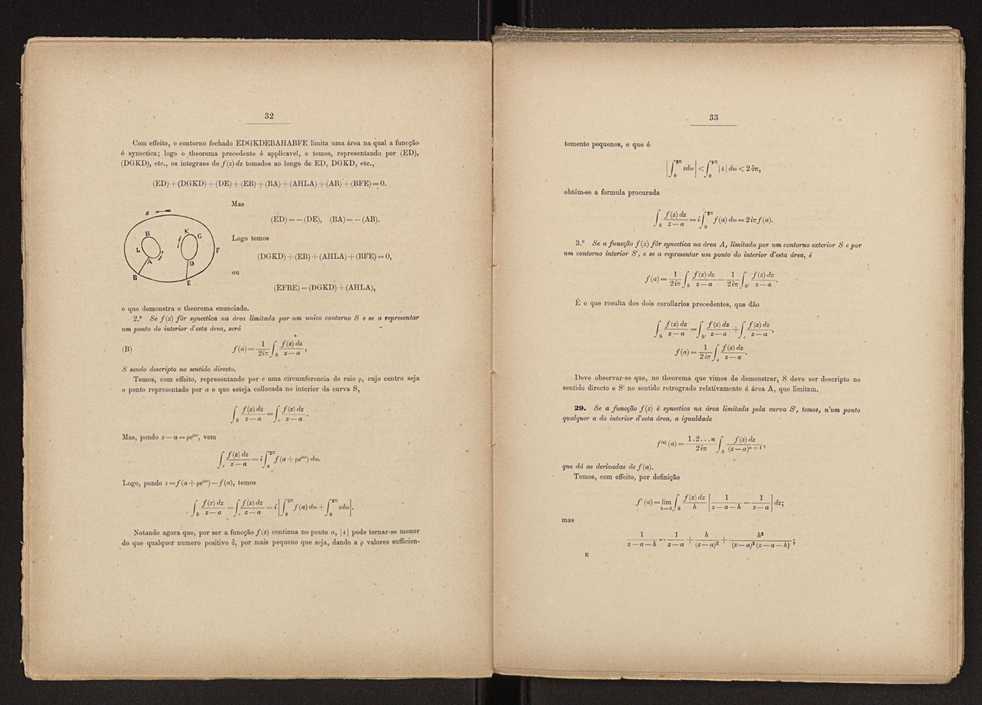 32
Com effeito, o contorno fechado EDGKDEBAHABFE limita uma área na qual a funcção
é synectica; logo o theorema precedente é applicavel, e temos, representando por (ED),
(DGKD), etc., os integraes de f(z) dz tomados ao longo de ED, DGKD, etc.,
(ED) + (DGKD) + (DE) + (EB) + (BA) + (AHLA) + (AB) + (BFE) = 0.
Mas
(ED) = — (DE), (BA) = — (AB).
Logo temos
(DGKD) + (EB) + (AHLA) + (BFE) = 0,
ou
(EFBE) = (DGKD) + (AHLA),
o que demonstra o theorema enunciado.
2.º Se f(z) fôr synectica na área limitada por um unico contorno S e se a representar
um ponto do interior d'esta área, será
(B) f(a) = 1/2iπ ∫_S f(z) dz / z — a,
S sendo descripto no sentido directo.
Temos, com effeito, representando por c uma circumferencia de raio ρ, cujo centro seja
o ponto representado por a e que esteja collocada no interior da curva S,
∫_S f(z) dz / z — a = ∫_c f(z) dz / z — a.
Mas, pondo z — a = ρe^{iω}, vem
∫_c f(z) dz / z — a = i ∫_0^{2π} f(a + ρe^{iω}) dω.
Logo, pondo ε = f(a + ρe^{iω}) — f(a), temos
∫_S f(z) dz / z — a = ∫_c f(z) dz / z — a = i [∫_0^{2π} f(a) dω + ∫_0^{2π} εdω].
Notando agora que, por ser a funcção f(z) continua no ponto a, |ε| pode tornar-se menor
do que qualquer numero positivo δ, por mais pequeno que seja, dando a ρ valores sufficien-
33
temente pequenos, e que é
|∫_0^{2π} εdω| < ∫_0^{2π} |ε| dω < 2δπ,
obtém-se a formula procurada
∫_S f(z) dz / z — a = i ∫_0^{2π} f(a) dω = 2iπ f(a).
3.º Se a funcção f(z) fôr synectica na área A, limitada por um contorno exterior S e por
um contorno interior S', e se a representar um ponto do interior d'esta área, é
f(a) = 1/2iπ ∫_S f(z) dz / z — a — 1/2iπ ∫_S' f(z) dz / z — a.
É o que resulta dos dois corollarios precedentes, que dão
∫_S f(z) dz / z — a = ∫_S' f(z) dz / z — a + ∫_c f(z) dz / z — a,
f(a) = 1/2iπ ∫_c f(z) dz / z — a.
Deve observar-se que, no theorema que vimos de demonstrar, S deve ser descripto no
sentido directo e S' no sentido retrogrado relativamente á área A, que limitam.
29. Se a funcção f(z) é synectica na área limitada pela curva S, temos, n'um ponto
qualquer a do interior d'esta área, a igualdade
f^{(n)}(a) = 1.2...n / 2iπ ∫_S f(z) dz / (z — a)^{n+1},
que dá as derivadas de f(a).
Temos, com effeito, por definição
f'(a) = lim_{h=0} ∫_S f(z) dz / h [1 / z — a — h — 1 / z — a] dz;
mas
1 / z — a — h = 1 / z — a + h / (z — a)² + h² / (z — a)² (z — a — h);
E